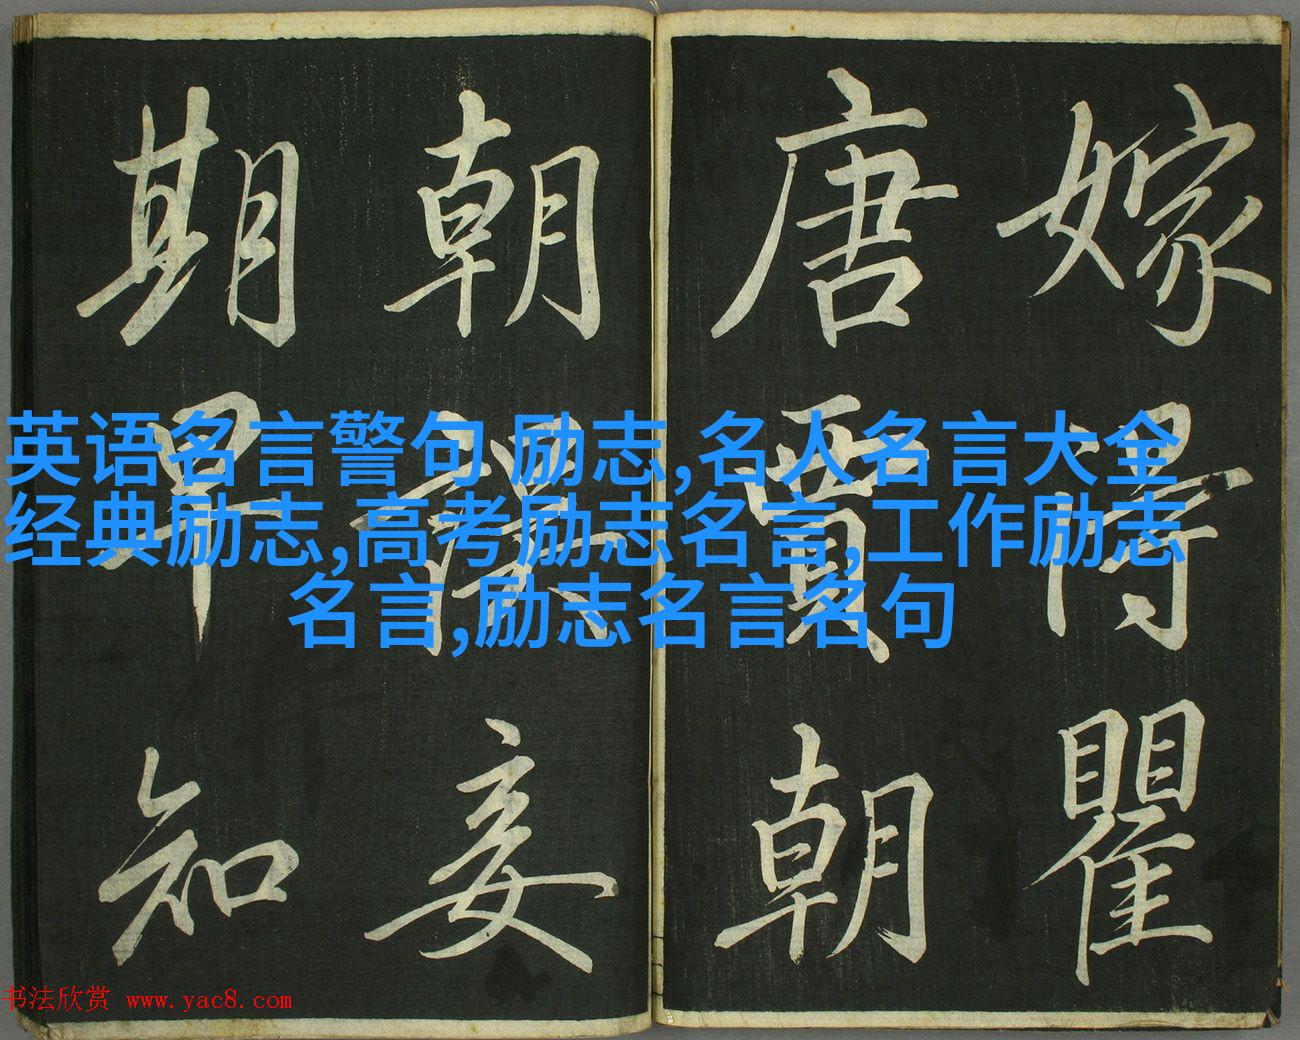 嫁得瞿
唐賈朝
朝誤妾
期早知
英语名言警句 励志,名人名言大全
经典励志,高考励志名言,工作励志
名言,励志名言名句
书法欣赏 www.yac8.com